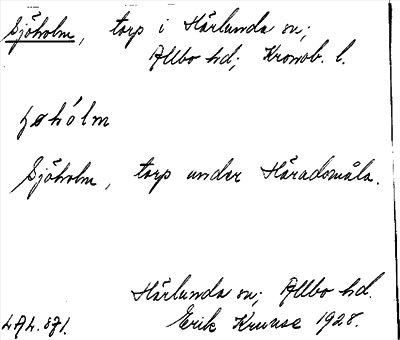 Sjöholm, torp i Härlunda sn;
Allbo hd; Kronob. l.
Sjöholm, torp under Häradsmåla.
Härlunda sn; Allbo hd.
Erik Kruuse 1928.